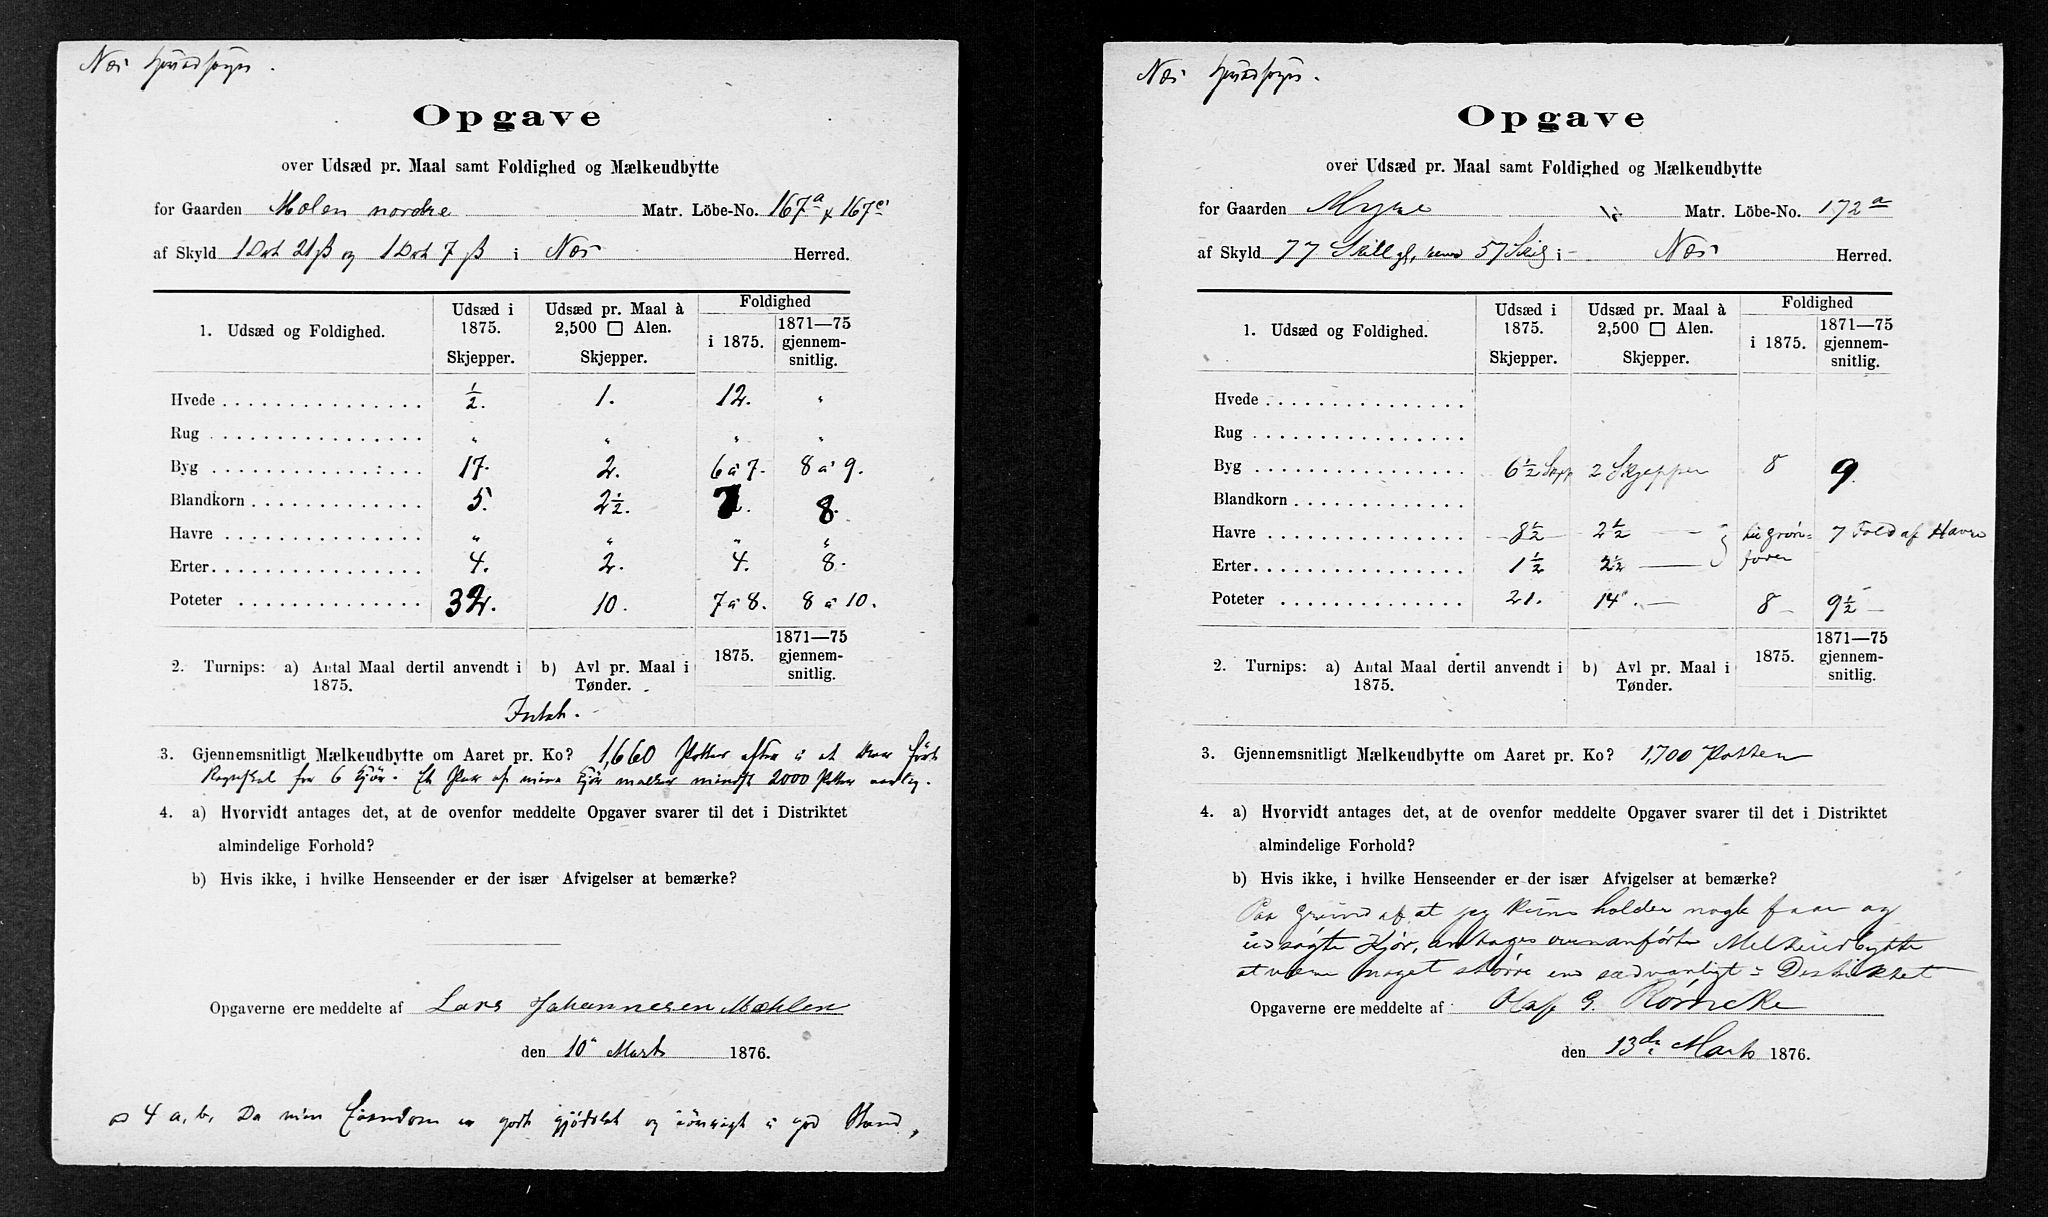 Næs
Opgave
over Udsæd pr. Maal samt Foldighed og Mælkeudbytte
for Gaarden Mælen nordre Matr. Löbe-No. 167a & 167c
af Skyld 1 Ort 21 ß og 1 Ort 7 ß i Næs Herred.
1. Udsæd og Foldighed.
Udsæd i 1875. Skjepper.
Udsæd pr. Maal à 2,500 □ Alen. Skjepper.
Foldighed
i 1875.
1871—75 gjennem-snitlig.
Hvede ½. 1. 12. "
Rug " " " "
Byg 17. 2. 6 à 7. 8 à 9.
Blandkorn 5. 2½. 7. 8.
Havre " " " "
Erter 4. 2. 4. 8.
Poteter 32. 10. 7 à 8. 8 à 10.
2. Turnips: a) Antal Maal dertil anvendt i 1875.
b) Avl pr. Maal i Tønder.
1875.
1871—75 gjennem-snitlig.
Intet.
3. Gjennemsnitligt Mælkeudbytte om Aaret pr. Ko? 1,660 Potter efter i et Aar ført
Regnskab for 6 Kjör. Et Par af mine Kjör melker mindst 2000 Potter aarlig.
4. a) Hvorvidt antages det, at de ovenfor meddelte Opgaver svarer til det i Distriktet
almindelige Forhold?
b) Hvis ikke, i hvilke Henseender er der især Afvigelser at bemærke?
Opgaverne ere meddelte af Lars Johannesen Mæhlen
den 10 Marts 1876.
ad 4 a, b, Da min Eiendom er godt gjödslet og i god Stand,
Næs
Opgave
over Udsæd pr. Maal samt Foldighed og Mælkeudbytte
for Gaarden Myre Matr. Löbe-No. 172a
af Skyld 77 Skill gl, 57 Skilg i Næs Herred.
1. Udsæd og Foldighed.
Udsæd i 1875. Skjepper.
Udsæd pr. Maal à 2,500 □ Alen. Skjepper.
Foldighed
i 1875.
1871—75 gjennem-snitlig.
Hvede
Rug
Byg 6½ Skpp 2 Skjepper 8 9.
Blandkorn
Havre 8½ 2½ — til grøn- 7 Fold af Havre
Erter 1½ 2½ — foder
Poteter 21. 14. — 8 — 9½ —
2. Turnips: a) Antal Maal dertil anvendt i 1875.
b) Avl pr. Maal i Tønder.
1875.
1871—75 gjennem-snitlig.
3. Gjennemsnitligt Mælkeudbytte om Aaret pr. Ko? 1,700 Potter
4. a) Hvorvidt antages det, at de ovenfor meddelte Opgaver svarer til det i Distriktet
almindelige Forhold?
b) Hvis ikke, i hvilke Henseender er der især Afvigelser at bemærke?
Paa Grund af at jeg kun holder nogle faa og
udsøgte Kjør, antages ovenanførte Melkeudbytte
at være noget større end sædvanligt i Distriktet
Opgaverne ere meddelte af Olaf G. Rømcke
den 13de Marts 1876.